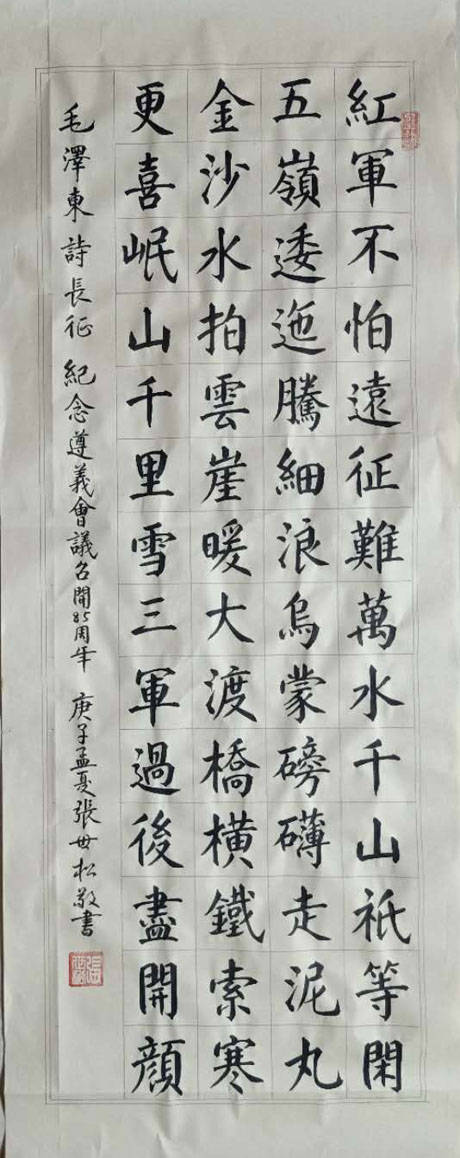 紅軍不怕遠征難萬水千山祇等閑
五嶺逶迤騰細浪烏蒙磅礴走泥丸
金沙水拍雲崖暖大渡橋横鐵索寒
更喜岷山千里雪三軍過後盡開顔
毛澤東詩長征 紀念遵義會議召開85周年 庚子孟夏張世松敬書